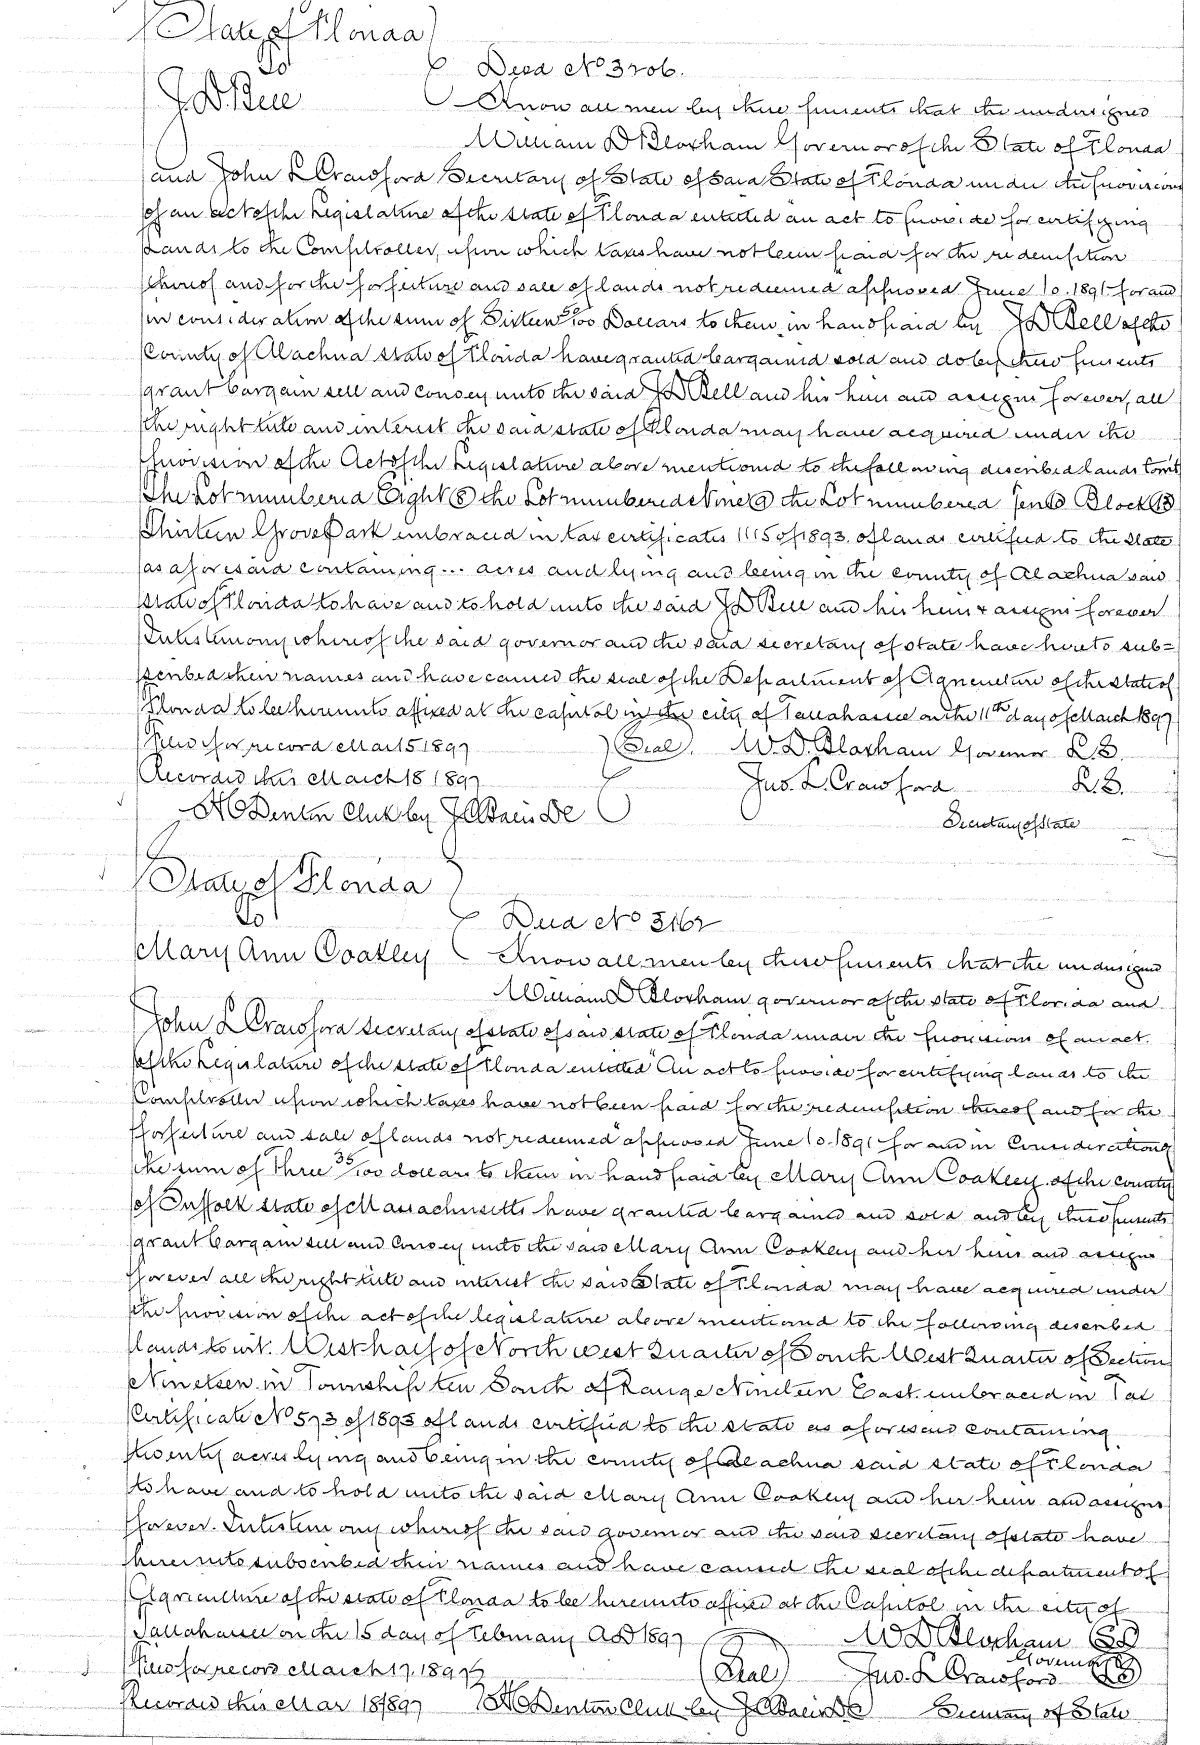 State of Florida
To
Deed No 3206.
J. D. Bell
Know all men by these presents that the undersigned
William D Bloxham Governor of the State of Florida
and John L Crawford Secretary of State of said State of Florida under the provisions
of an act of the Legislature of the State of Florida entitled an act to provide for certifying
Lands to the Comptroller, upon which taxes have not been paid for the redemption
thereof and for the forfeiture and sale of lands not redeemed" approved June 10. 1891 for and
in consideration of the sum of Sixteen 50/100 Dollars to them in hand paid by J D Bell of the
County of Alachua state of Florida have granted bargained sold and do by these presents
grant bargain sell and convey unto the said J D Bell and his heirs and assigns forever, all
the right title and interest the said state of Florida may have acquired under the
provision of the Act of the Legislature above mentioned to the following described lands towit
The Lot numbered Eight (8) the Lot numbered Nine (9) the Lot numbered Ten (10) Block (13)
Thirteen Grove Park embraced in tax certificates 1115 of 1893. of lands certified to the State
as aforesaid containing ... acres and lying and being in the county of Alachua said
state of Florida to have and to hold unto the said J D Bell and his heirs & assigns forever
In testimony whereof the said governor and the said secretary of state have hereto sub=
scribed their names and have caused the seal of the Department of Agriculture of the state of
Florida to be hereunto affixed at the capitol in the city of Tallahassee on the 11th day of March 1897
Filed for record Mar 15 1897 (Seal). W. D. Bloxham Governor L S.
Recorded this March 18 1897 Jno. L. Crawford L. S.
H C Denton Clerk by J C Bacis D C Secretary of State
State of Florida
To
Deed No 3162
Mary Ann Coakley Know all men by these presents that the undersigned
William D Bloxham governor of the state of Florida and
John L Crawford secretary of state of said state of Florida under the provisions of an act.
of the Legislature of the state of Florida entitled "An act to provide for certifying lands to the
Comptroller upon which taxes have not been paid for the redemption thereof and for the
forfeiture and sale of lands not redeemed" approved June 10. 1891 for and in Consideration of
the sum of Three 35/100 dollars to them in hand paid by Mary Ann Coakley of the county
of Suffolk state of Massachusetts have granted bargained and sold and by these presents
grant bargain sell and convey unto the said Mary Ann Coakley and her heirs and assigns
forever all the right title and interest the said State of Florida may have acquired under
the provision of the act of the legislature above mentioned to the following described
lands to wit. West half of North west Quarter of South West Quarter of Section
Nineteen in Township ten South of Range Nineteen East. embraced in Tax
Certificate No 573 of 1893 of lands certified to the state as aforesaid containing
twenty acres lying and being in the county of Alachua said state of Florida
to have and to hold unto the said Mary Ann Coakley and her heirs and assigns
forever. In testimony whereof the said governor and the said secretary of state have
hereunto subscribed their names and have caused the seal of the department of
Agriculture of the state of Florida to be hereunto affixed at the Capitol in the city of
Tallahassee on the 15 day of February AD 1897
W D Bloxham L S
Governor
Filed for record March 17. 1897 (Seal) Jno. L Crawford L S
Recorded this Mar 18 1897 H C Denton Clerk by J C Bacis D C Secretary of State